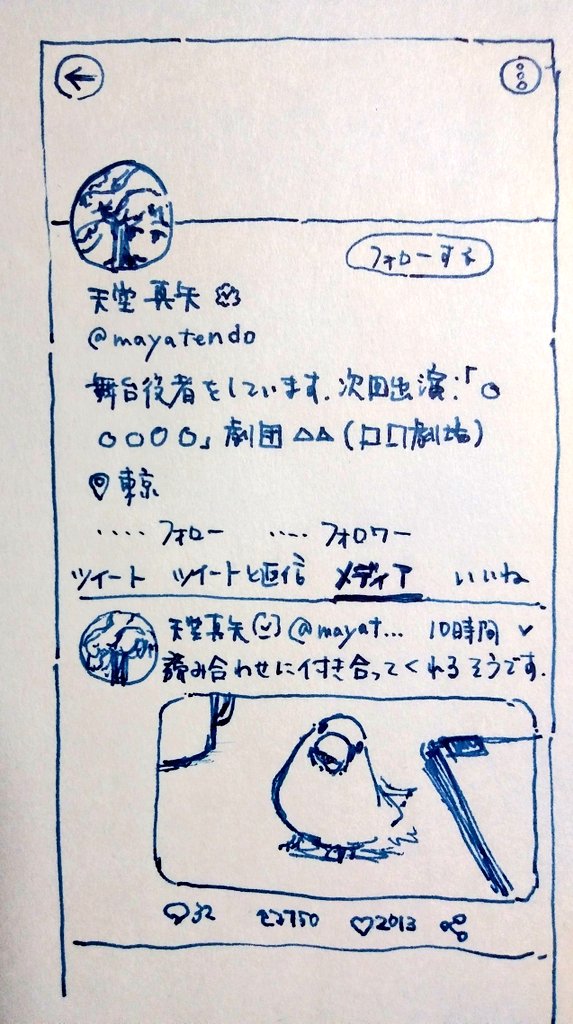 フォローする
天堂真矢
@mayatendo
舞台役者をしています.次回出演:「○
○○○○」劇団△△(□□劇場)
東京
.....フォロー ....フォロワー
ツイート ツイートと返信 メディア いいね
天堂真矢 @mayat... 10時間
読み合わせに付き合ってくれるそうです.
32 2750 2013